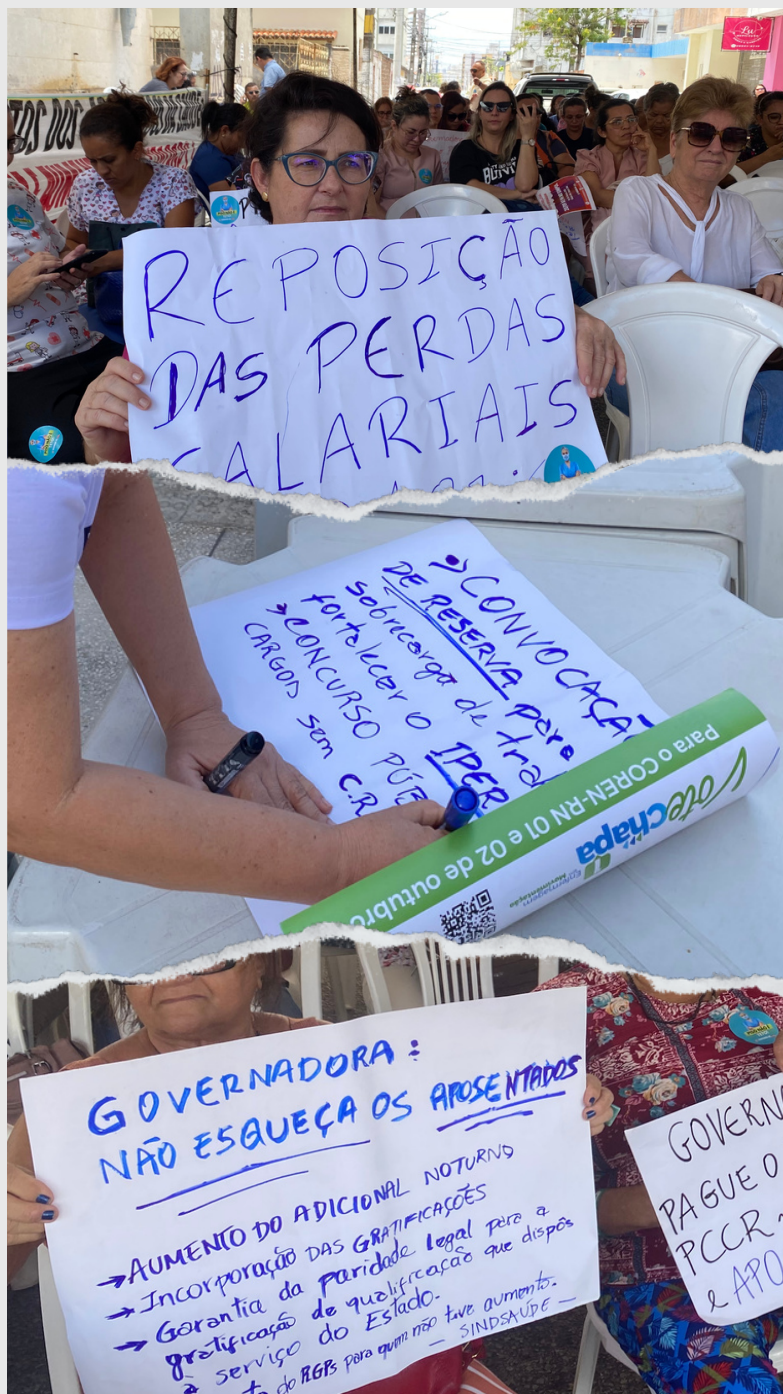 REPOSIÇÃO
DAS PERDAS
SALARIAIS
→ CONVOCAÇÃ
DE RESERVA para
sobrecarga de tra
fortalecer o IPER
→ CONCURSO PÚB
CARGOS sem C.R
Vote chapa 1
Para o COREN-RN 01 e 02 de outubro
Enfermagem
Movimentação
GOVERNADORA:
NÃO ESQUEÇA OS APOSENTADOS
→ AUMENTO DO ADICIONAL NOTURNO
→ Incorporação DAS GRATIFICAÇÕES
→ Garantia da paridade legal para a
gratificação de qualificação que dispôs
à serviço do Estado.
do RGPs para quem não teve aumento.
— SINDSAÚDE —
GOVERN
PAGUE O
PCCR
e APO